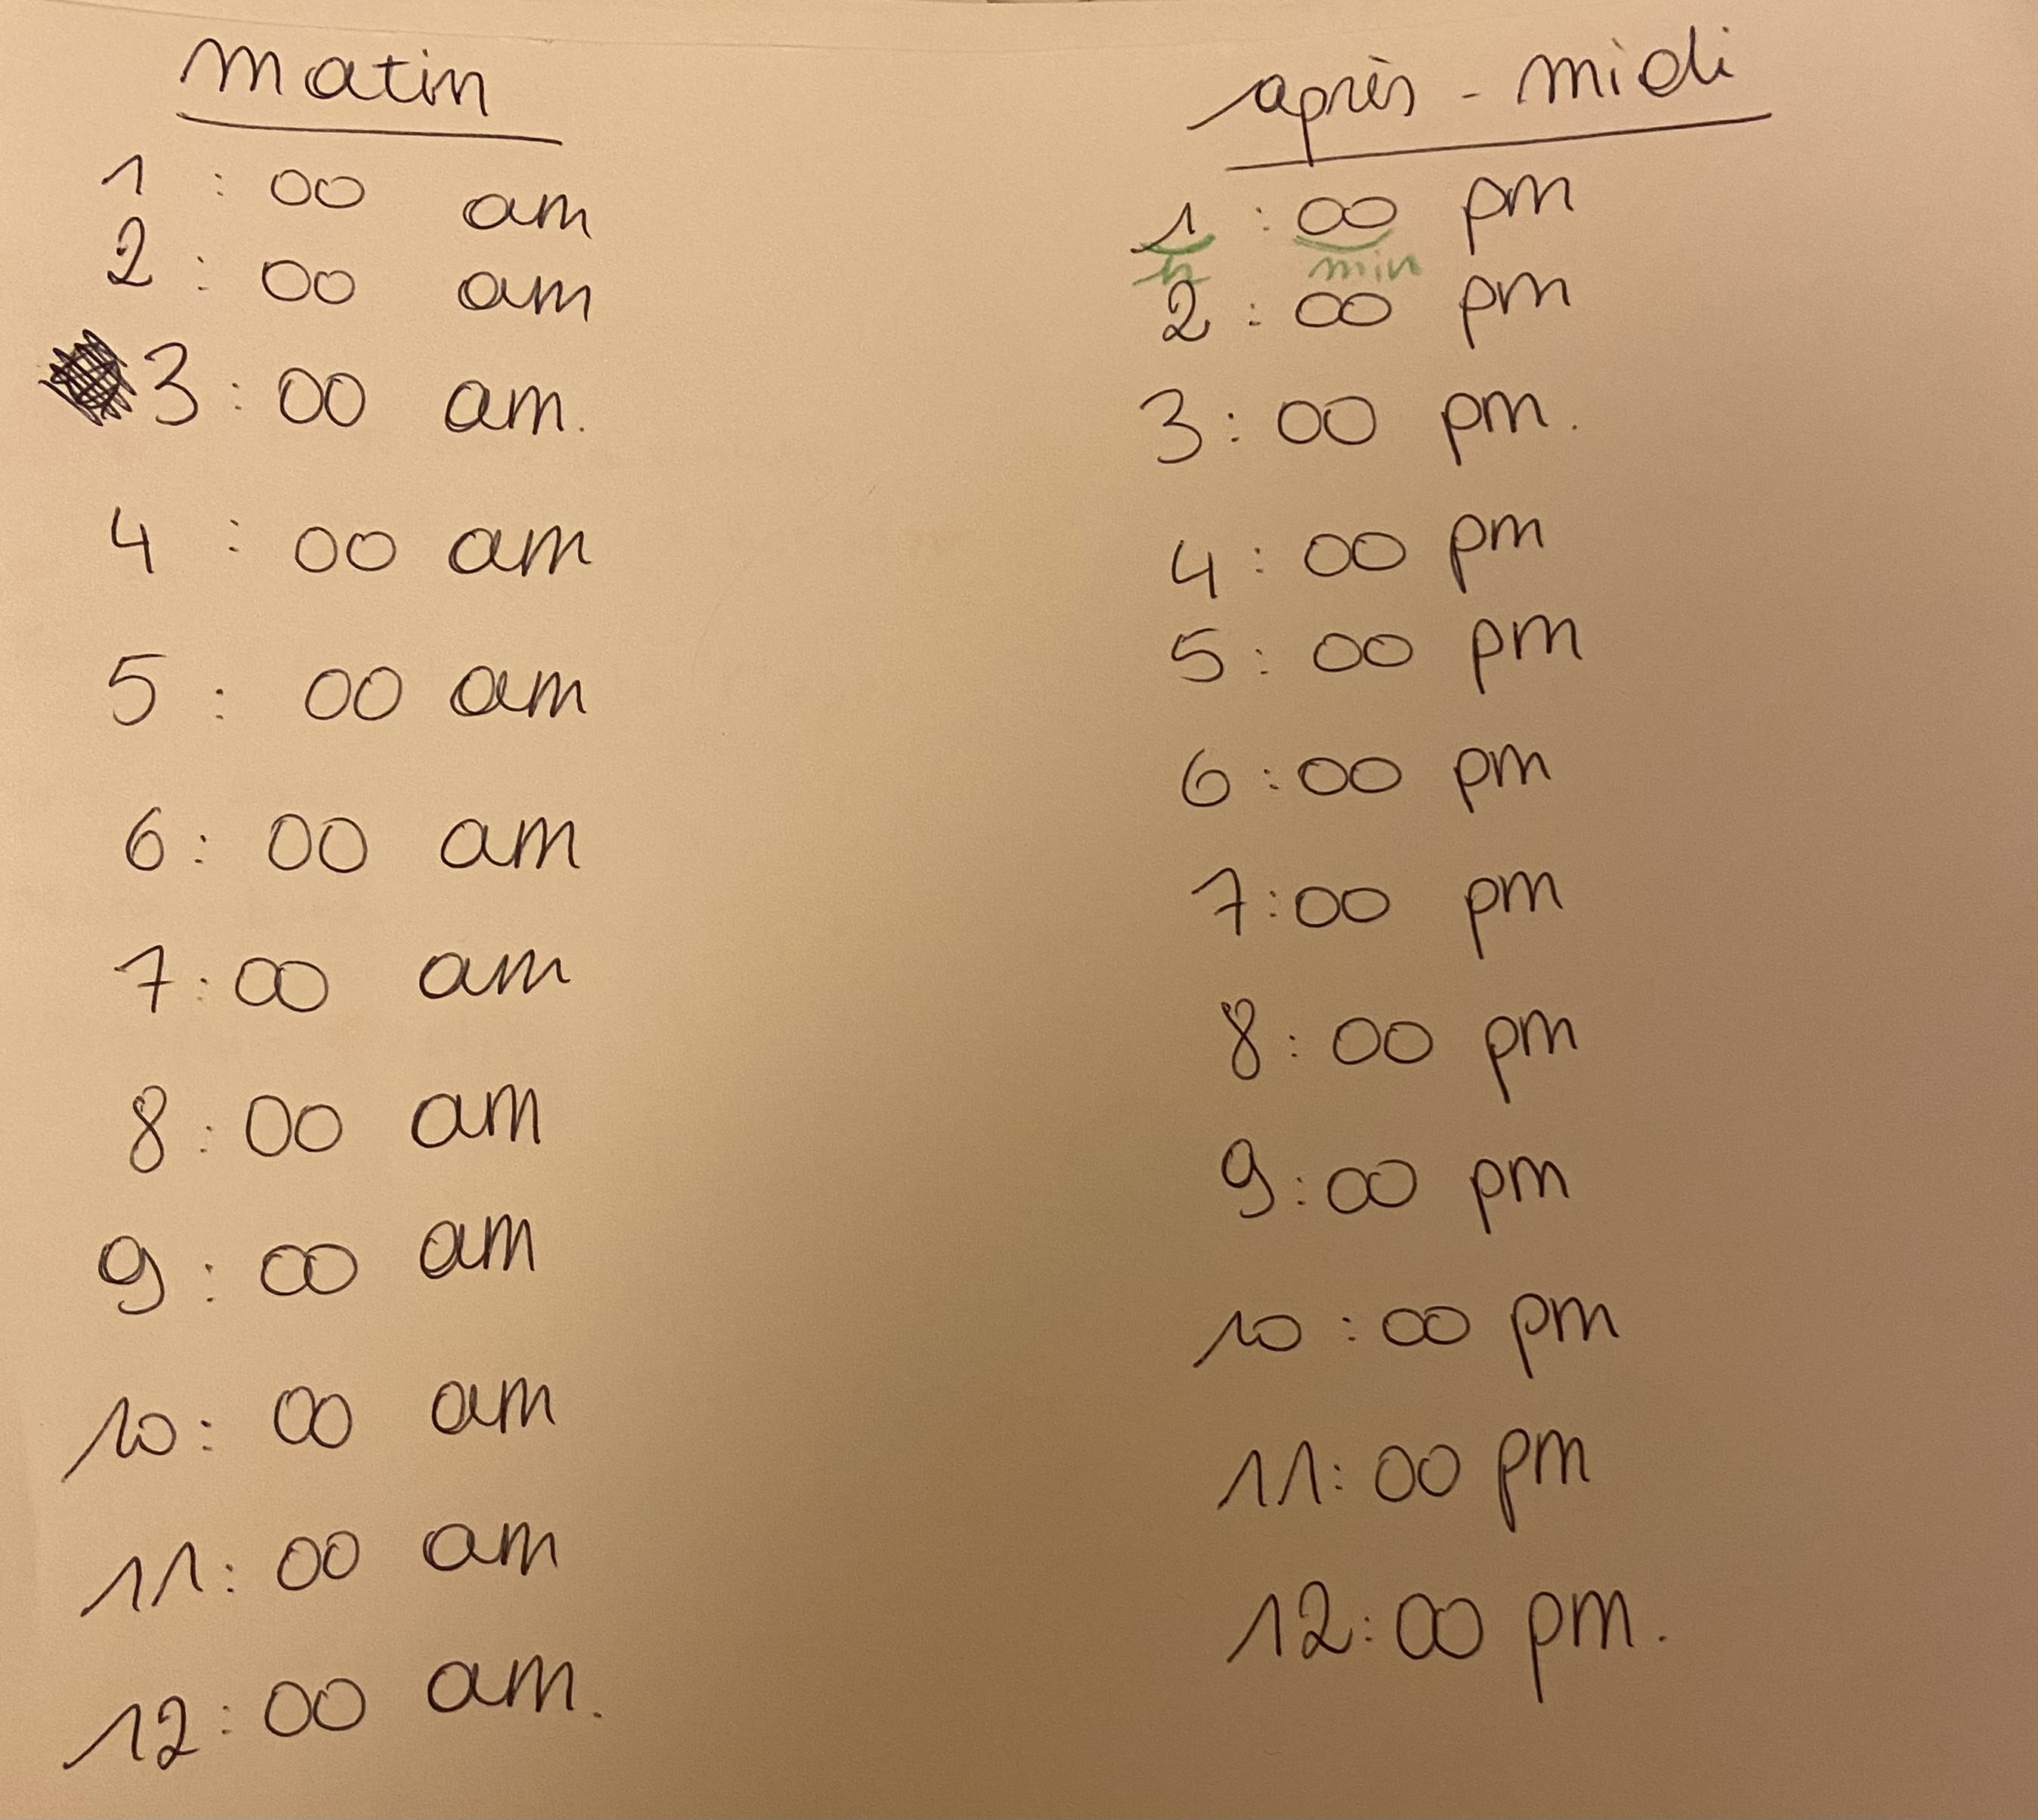 matin
1 : 00 am
2 : 00 am
3 : 00 am.
4 : 00 am
5 : 00 am
6 : 00 am
7 : 00 am
8 : 00 am
9 : 00 am
10 : 00 am
11 : 00 am
12 : 00 am.
après - midi
1 : 00 pm
h min
2 : 00 pm
3 : 00 pm.
4 : 00 pm
5 : 00 pm
6 : 00 pm
7 : 00 pm
8 : 00 pm
9 : 00 pm
10 : 00 pm
11 : 00 pm
12 : 00 pm.